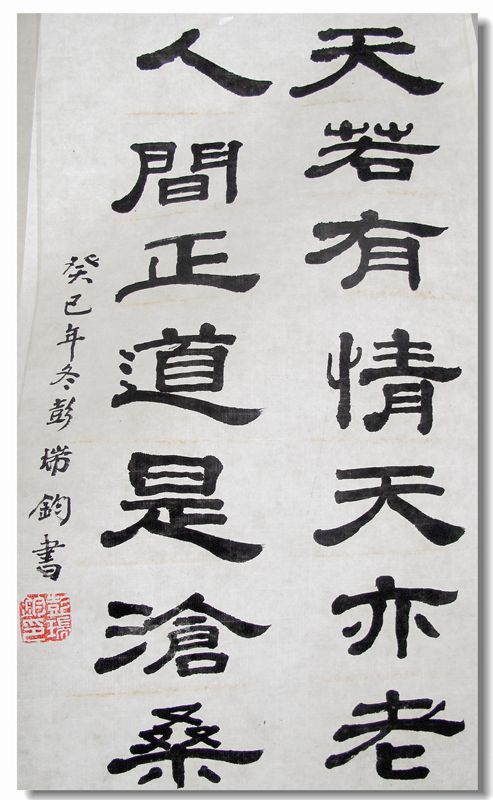 天若有情天亦老
人間正道是滄桑
癸巳年冬彭墆鈞書